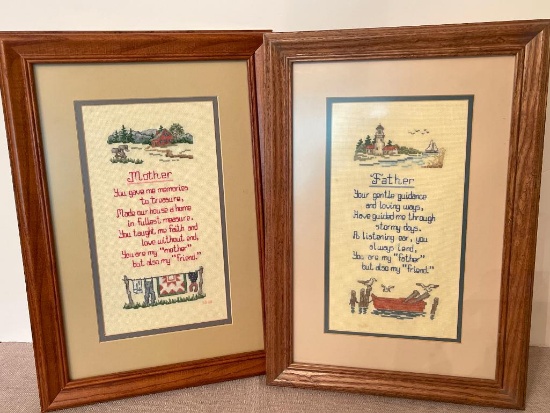 Mother
You gave me memories
to treasure,
Made our house a home
in fullest measure,
You taught me faith and
love without end,
You are my "mother"
but also my "friend."
Father
Your gentle guidance
and loving ways,
Have guided me through
stormy days.
A listening ear, you
always lend,
You are my "father"
but also my "friend."